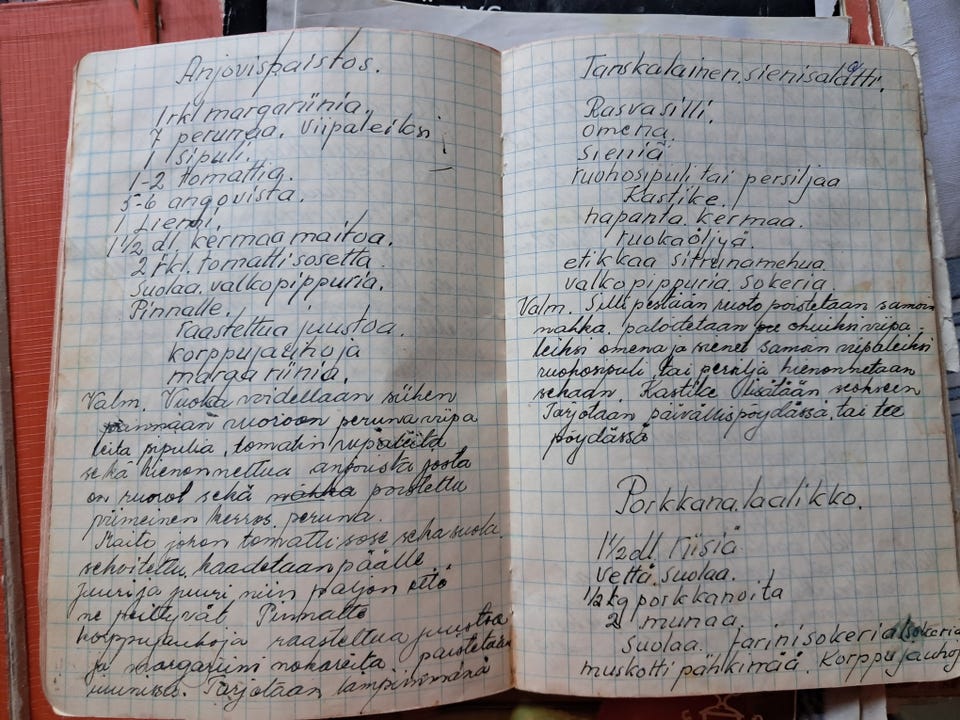 Anjovispaistos.
1 rkl margariinia.
7 perunaa. viipaleiksi
1 sipuli.
1-2 tomattia.
5-6 angovista.
1 Liemi.
1 1/2 dl. kermaa maitoa.
2 rkl. tomatti sosetta
Suolaa. valkopippuria.
Pinnalle.
raasteltua juustoa.
korppujauhoja
margariinia.
Valm. Vuoka voidellaan siihen
vuoroon perunaviipa
leita sipulia, tomatin viipaleita
sekä hienonnettua anjovista josta
on ruorot sekä nahka poistettu
viimeinen kerros. peruna.
Maito johon tomatti sose seka suola
sehoitettu. kaadetaan päälle.
juuri ja juuri niin paljon että
ne peittyvät. Pinnalle
korppujauhoja raasteltua juustoa
ja margariini nokareita. paistetaan
uunissa. Tarjotaan lämpimänänä
Tanskalainen.sienisalatti.
Rasvasilli.
omena.
sieniä
ruohosipuli tai persiljaa
Kastike.
hapanta. kermaa.
ruokaöljyä.
etikkaa sitrunamehua.
valkopippuria. sokeria.
Valm. Silli pestään ruoto poistetaan samoin
nahka. paloitetaan ohuiksi viipa
leiksi omena ja sienet samoin viipaleiksi
ruohosipuli tai persilja hienonnetaan
sehaan. Kastike lisätään
Tarjotaan päivällispöydässä. tai tee
pöydässä
Porkkana.laalikko.
1 1/2 dl. riisiä
Vettä. suolaa.
1/2 kg porkkanoita
2 munaa.
Suolaa. farinisokeria
muskotti pähkinää. Korppujauhoj